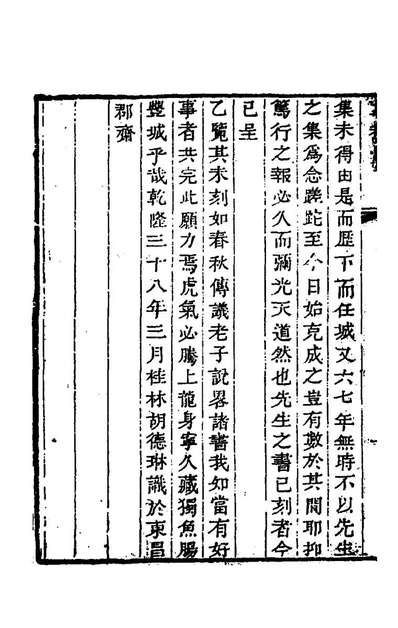 集未得由是而歴下而任城又六七年無時不以先生
之集爲念蹉跎至今日始克成之豈有數於其間耶抑
篤行之報必久而彌光天道然也先生之書已刻者今
已呈
乙覽其未刻如春秋傳議老子說畧諸書我如當有好
事者共完此願力焉虎氣必騰上龍身寧久藏獨魚腸
豐城乎哉乾隆三十八年三月桂林胡德琳識於東昌
郡齋